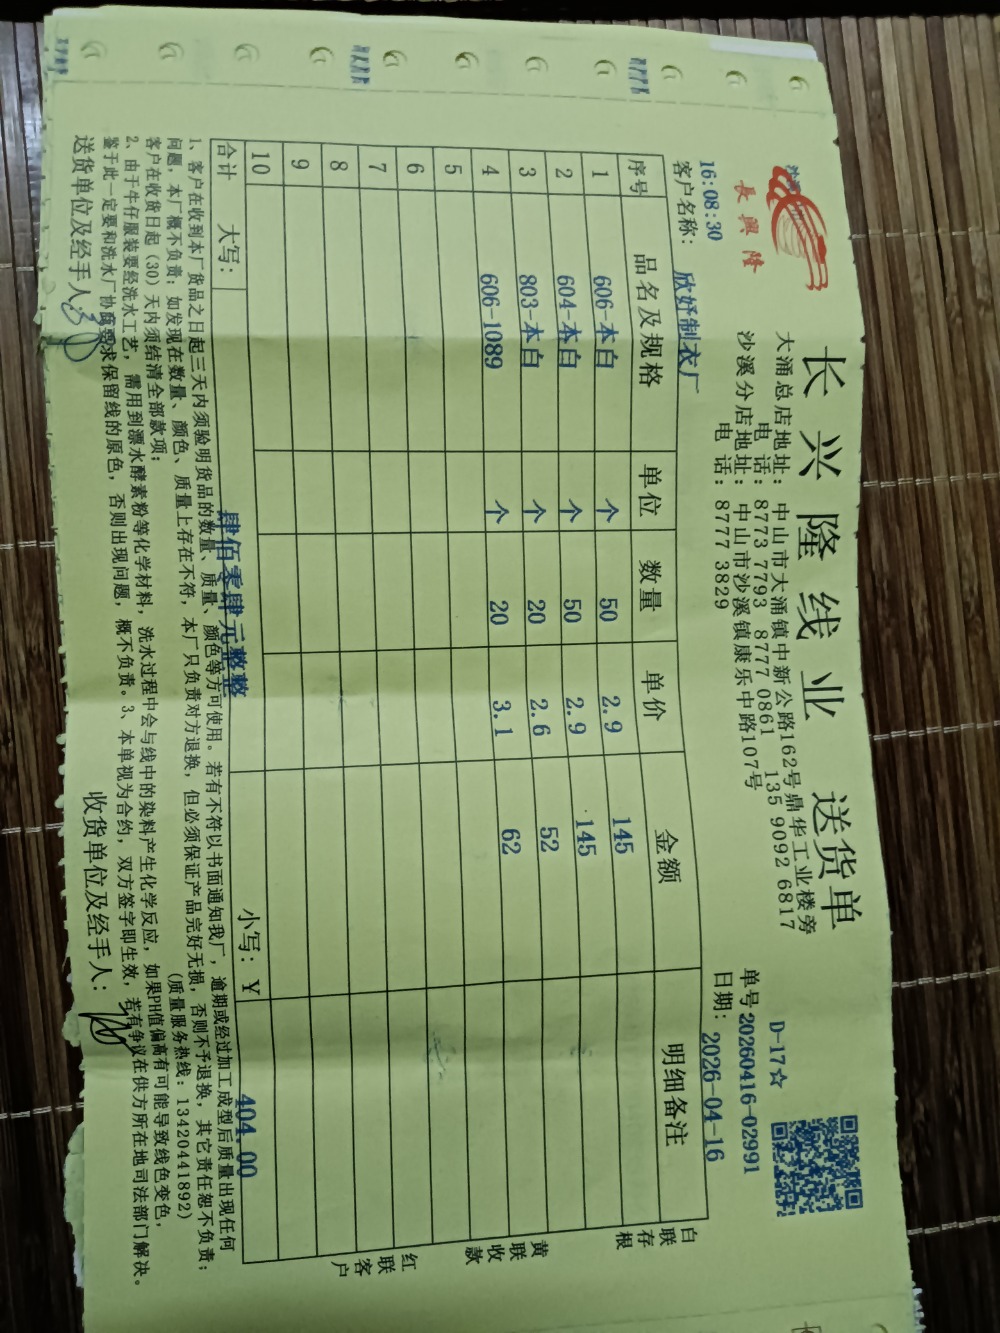 長興隆
长兴隆线业 送货单
大涌总店地址：中山市大涌镇中新公路162号鼎华工业楼旁
电话：8773 7793 8777 0861 135 9092 6817
沙溪分店地址：中山市沙溪镇康乐中路107号
电话：8777 3829
D-17☆
单号 20260416-02991
16:08:30
日期：2026-04-16
客户名称：欣妤制衣厂
序号 品名及规格 单位 数量 单价 金额 明细备注
1 606-本白 个 50 2.9 145
2 604-本白 个 50 2.9 145
3 803-本白 个 20 2.6 52
4 606-1089 个 20 3.1 62
5
6
7
8
9
10
合计 大写：肆佰零肆元整整 小写：￥ 404.00
白联存根
黄联收款
红联客户
1、客户在收到本厂货品之日起三天内须验明货品的数量、质量、颜色等方可使用。若有不符以书面通知我厂，逾期或经过加工成型后质量出现任何
问题，本厂概不负责；如发现在数量、颜色、质量上存在不符，本厂只负责对方退换，但必须保证产品完好无损，否则不予退换，其它责任恕不负责；
客户在收货日起（30）天内须结清全部款项； （质量服务热线：13420441892）
2、由于牛仔服装要经洗水工艺，需用到漂水酵素粉等化学材料，洗水过程中会与线中的染料产生化学反应，如果PH值偏高有可能导致线色变色，
鉴于此一定要和洗水厂协商要求保留线的原色，否则出现问题，概不负责。3、本单视为合约，双方签字即生效，若有争议在供方所在地司法部门解决。
送货单位及经手人： 收货单位及经手人：